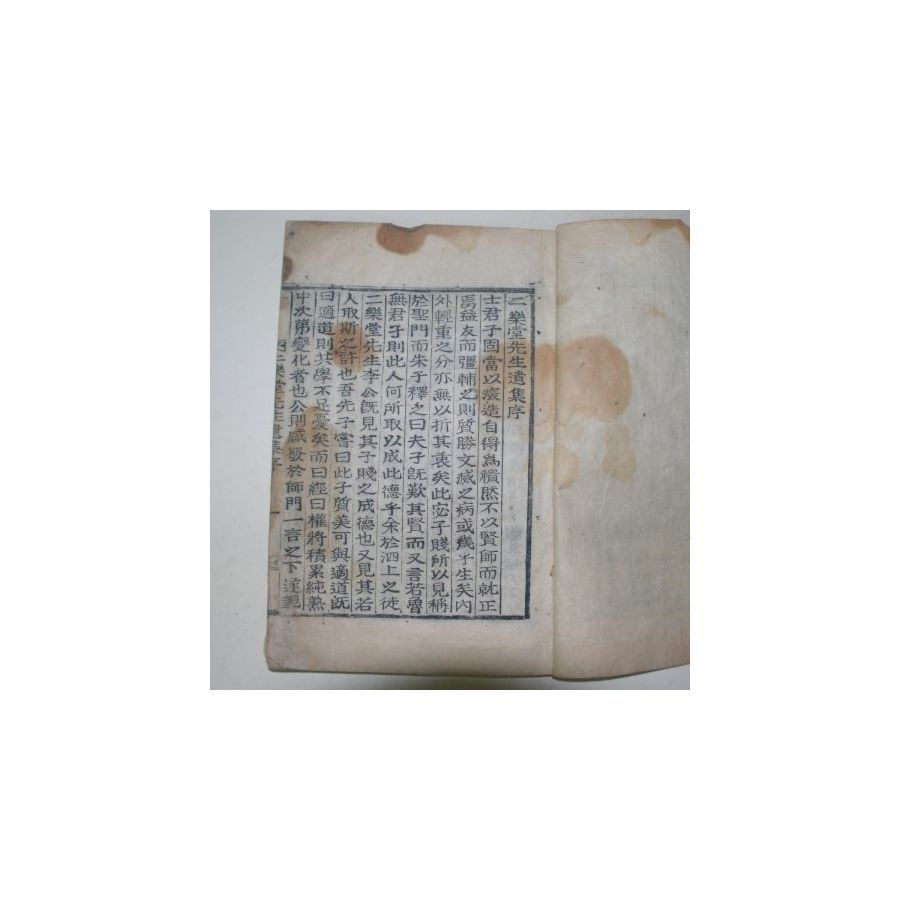 二樂堂先生遺集序
士君子固當以深造自得爲積然不以賢師而就正
焉益友而彊輔之則質勝文滅之病或幾乎生矣內
外輕重之分亦無以折其衷矣此宓子賤所以見稱
於聖門而朱子釋之曰夫子旣歎其賢而又言若魯
無君子則此人何所取以成此德乎余於泗上之徒
二樂堂先生李公旣見其子賤之成德也又見其若
人取斯之許也吾先子嘗曰此子質美可與適道旣
曰適道則其學不足憂矣而曰經曰權將積累純熟
中次第變化者也公則感發於師門一言之下遂
二樂堂先生遺集序